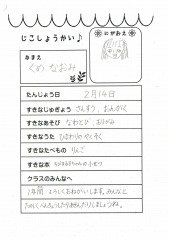 じこしょうかい♪
なまえ
くめ なおみ
にがおえ
たんじょう日 2月14日
すきなじゅぎょう さんすう、おんがく
すきなあそび なわとび、おりがみ
すきなうた ひまわりのやくそく
すきなたべもの りんご
すきな本
クラスのみんなへ
1年間 よろしくおねがいします。みんなと
たのしくべんきょうしたりあそんだりしましょうね。